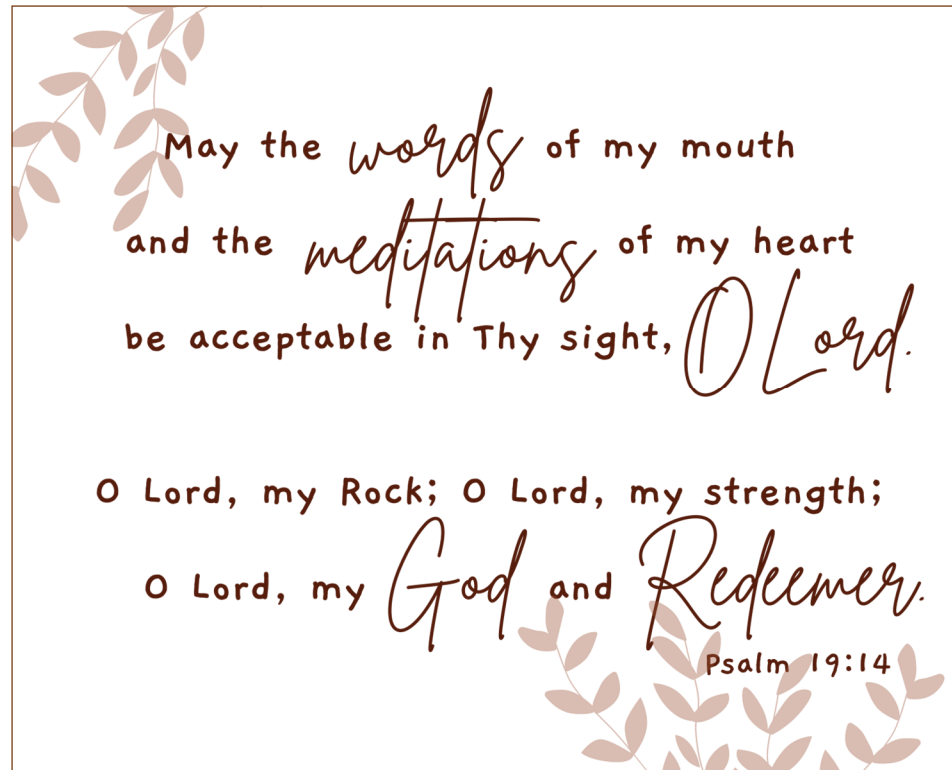 May the words of my mouth
and the meditations of my heart
be acceptable in Thy sight, O Lord.
O Lord, my Rock; O Lord, my strength;
O Lord, my God and Redeemer.
Psalm 19:14